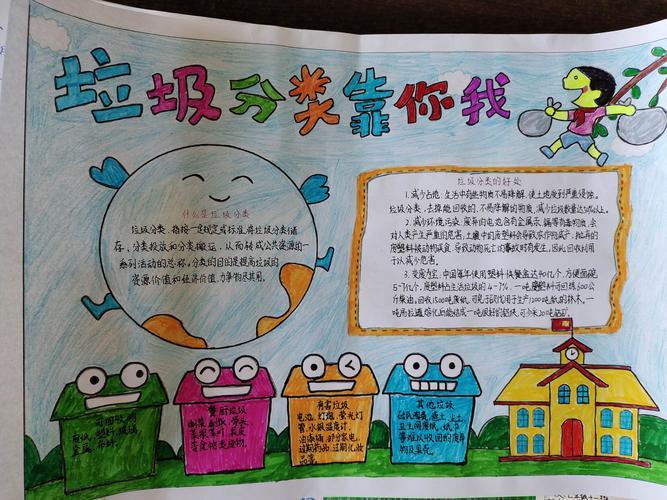 垃圾分类靠你我
什么是垃圾分类
垃圾分类，指按一定规定或标准将垃圾分类储
存、分类投放和分类搬运，从而转成公共资源的一
系列活动的总称。分类的目的是提高垃圾的
资源价值和经济价值，力争物尽其用。
垃圾分类的好处
1.减少占地：生活中有些物质不易降解，使土地受到严重侵蚀。
垃圾分类，去掉能回收的、不易降解的物质，减少垃圾数量达50%以上。
2.减少环境污染：废弃的电池含有金属汞、镉等有毒的物质，会
对人类产生严重的危害，土壤中的废塑料会导致农作物减产，抛弃的
废塑料被动物误食，导致动物死亡的事故时有发生，因此回收利用
可以减少危害。
3.变废为宝：中国每年使用塑料快餐盒达40亿个，方便面碗
5-7亿个，废塑料占生活垃圾的4-7%。一吨废塑料可回炼600公
斤柴油。回收1500吨废纸，可免于砍伐用于生产1200吨纸的林木。一
吨易拉罐熔化后能结成一吨很好的铝块，可少采20吨铝矿。
可回收物
废纸、塑料、玻璃
金属、布料
餐厨垃圾
剩菜、剩饭、骨头
菜根菜叶、果皮
等食物类废物。
有害垃圾
电池、灯泡、荧光灯
管、水银温度计、
油漆桶、部分家电、
过期药品、过期化妆
品等
其他垃圾
砖瓦陶瓷、渣土、
卫生间废纸、纸巾
等难以回收的废弃
物及果壳。